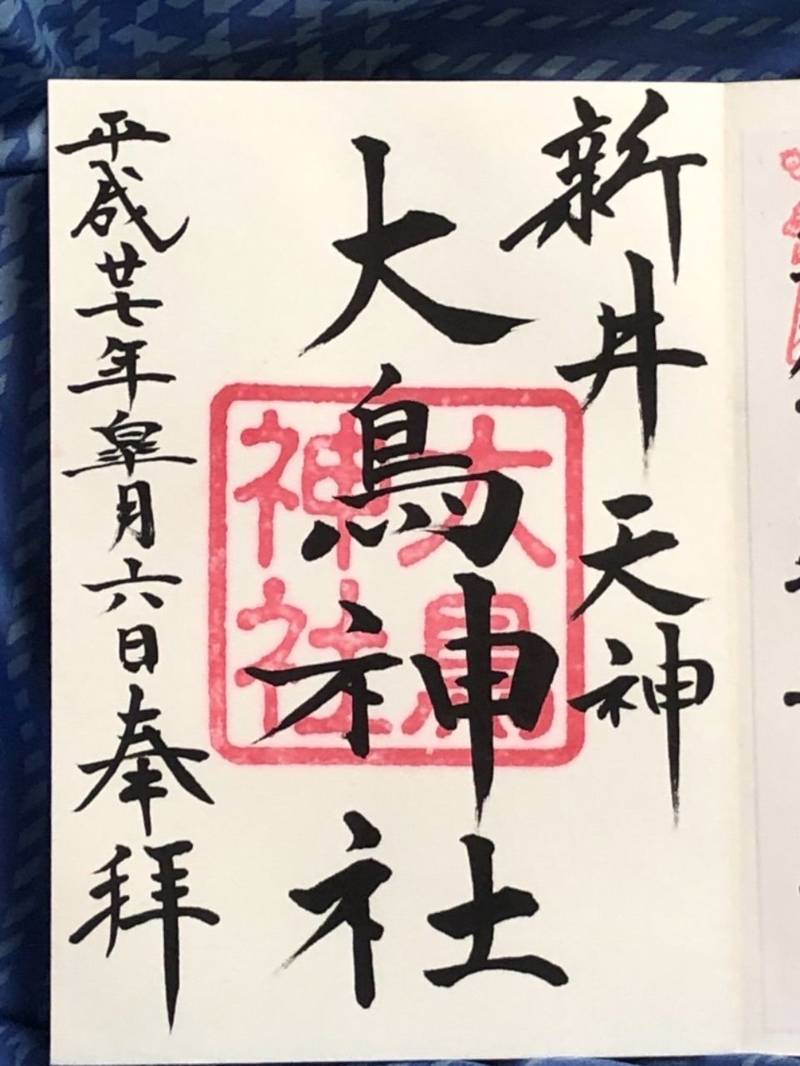 新井天神
大鳥神社
大鳥
神社
平成廿七年皐月六日奉拝